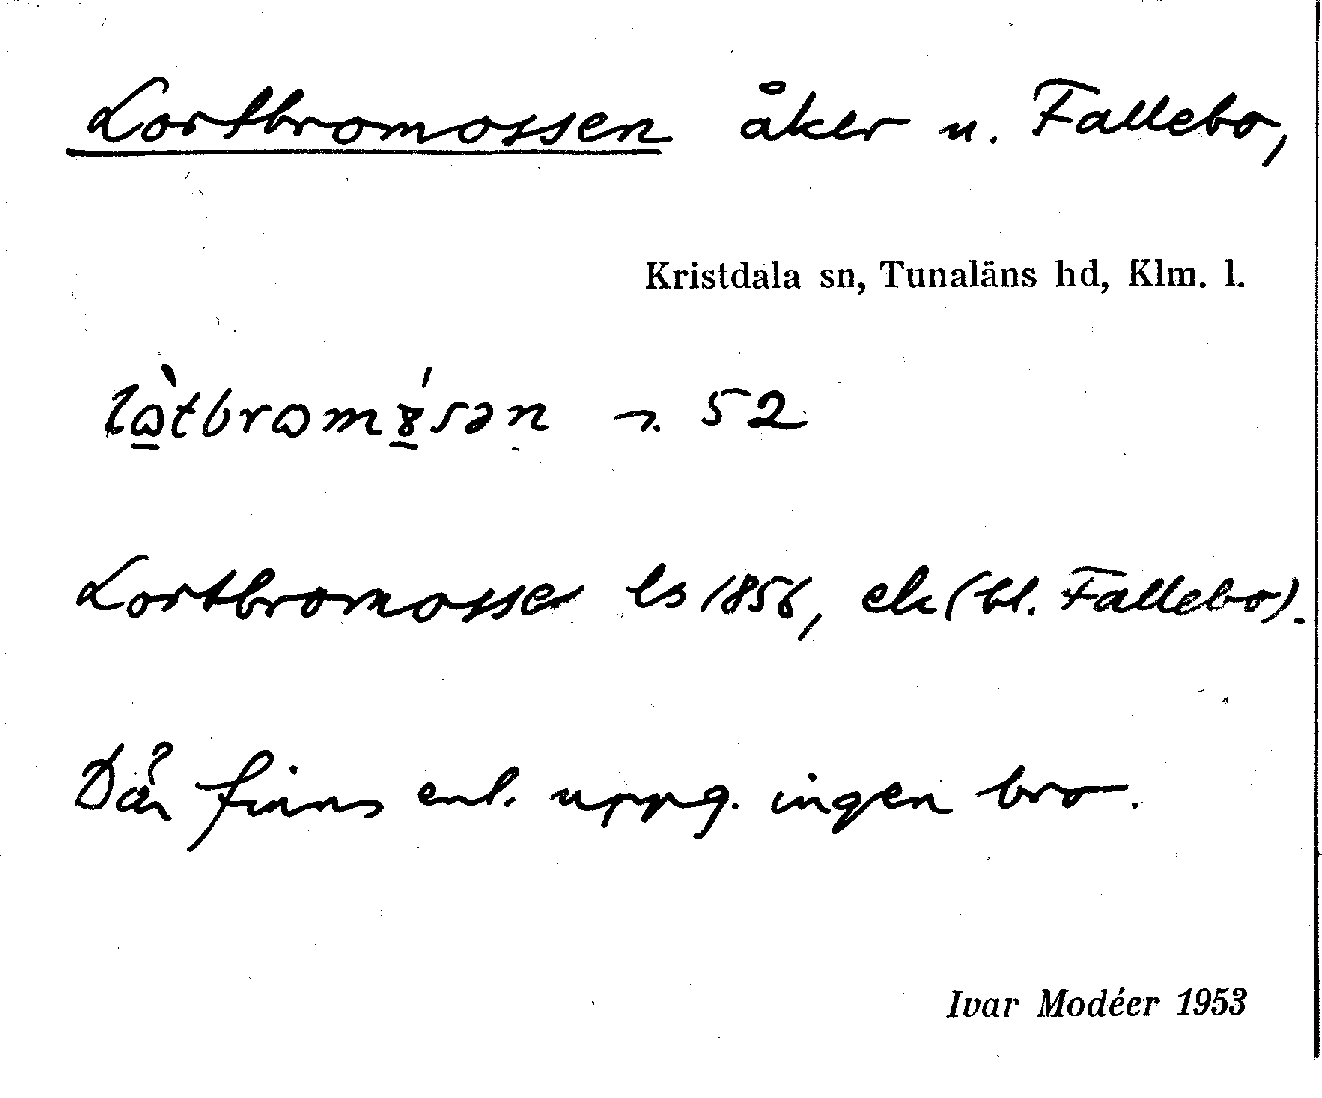 Lortbromossen åker u. Fallebo,
Kristdala sn, Tunaläns hd, Klm. l.
52
Lortbromosse ls 1856, ek (bl. Fallebo).
Där finns enl. uppg. ingen bro.
Ivar Modéer 1953